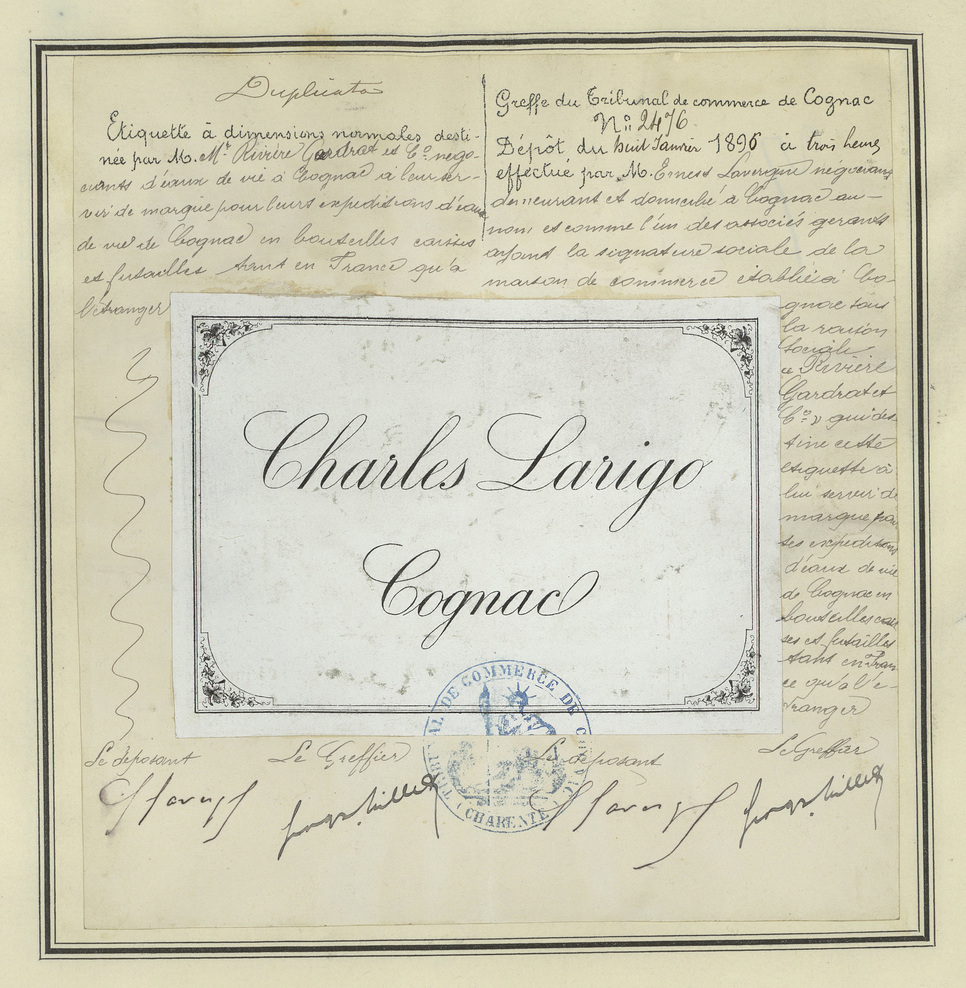 Duplicata
Etiquette à dimensions normales desti-
née par M. Mrs Rivière Gardrat et Co. négo-
ciants d'eaux de vie à Cognac à leur ser-
vir de marque pour leurs expéditions d'eaux
de vie de Cognac en bouteilles caisses
et futailles tant en France qu'à
l'étranger
Greffe du Tribunal de commerce de Cognac
No. 2476
Dépôt du huit Janvier 1896 à trois heures
effectué par M. Ernest Lavergne négociant
demeurant et domicilié à Cognac au
nom et comme l'un des associés gérants
ayant la signature sociale de la
maison de commerce établie à Co-
gnac sous
la raison
sociale
Rivière
Gardrat et
Co. qui des
tine cette
étiquette à
lui servir de
marque pour
ses expéditions
d'eaux de vie
de Cognac en
bouteilles cais
ses et futailles
tant en Fran
ce qu'à l'é-
tranger
Charles Larigo
Cognac
TRIBUNAL DE COMMERCE DE COGNAC
(CHARENTE)
Le déposant Le Greffier Le déposant Le Greffier